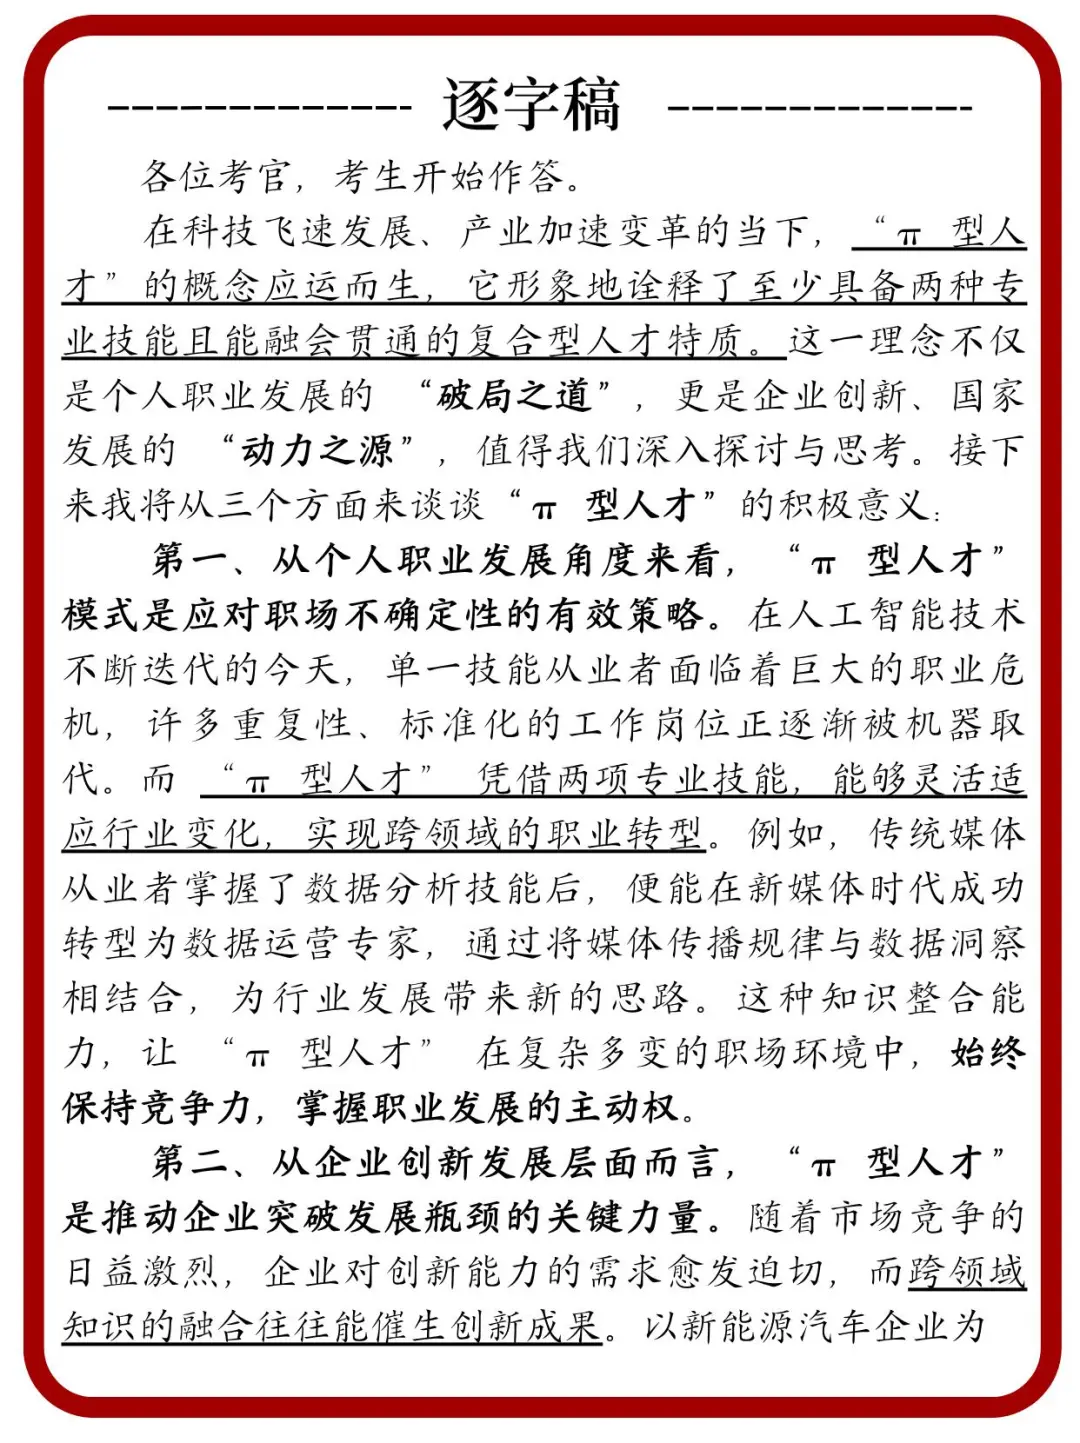 逐字稿
各位考官，考生开始作答。
在科技飞速发展、产业加速变革的当下，“π 型人
才”的概念应运而生，它形象地诠释了至少具备两种专
业技能且能融会贯通的复合型人才特质。这一理念不仅
是个人职业发展的 “破局之道”，更是企业创新、国家
发展的 “动力之源”，值得我们深入探讨与思考。接下
来我将从三个方面来谈谈“π 型人才”的积极意义：
第一、从个人职业发展角度来看，“π 型人才”
模式是应对职场不确定性的有效策略。在人工智能技术
不断迭代的今天，单一技能从业者面临着巨大的职业危
机，许多重复性、标准化的工作岗位正逐渐被机器取
代。而 “π 型人才” 凭借两项专业技能，能够灵活适
应行业变化，实现跨领域的职业转型。例如，传统媒体
从业者掌握了数据分析技能后，便能在新媒体时代成功
转型为数据运营专家，通过将媒体传播规律与数据洞察
相结合，为行业发展带来新的思路。这种知识整合能
力，让 “π 型人才” 在复杂多变的职场环境中，始终
保持竞争力，掌握职业发展的主动权。
第二、从企业创新发展层面而言，“π 型人才”
是推动企业突破发展瓶颈的关键力量。随着市场竞争的
日益激烈，企业对创新能力的需求愈发迫切，而跨领域
知识的融合往往能催生创新成果。以新能源汽车企业为